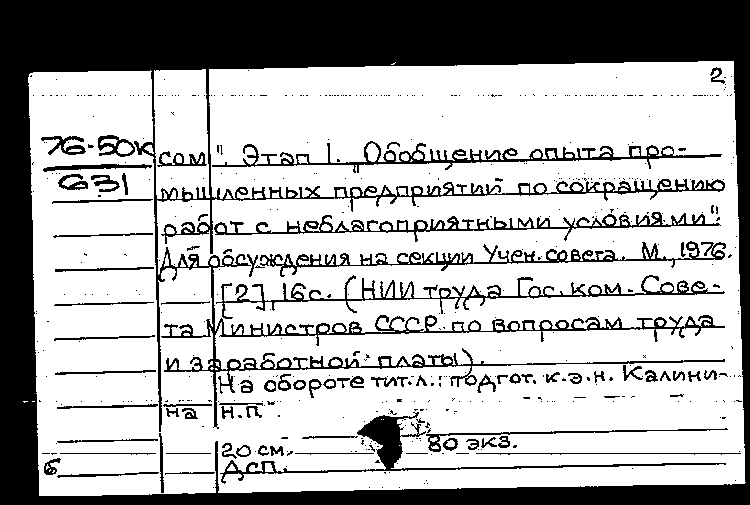 2
76-50к
631
сом". Этап 1. „Обобщение опыта про-
мышленных предприятий по сокращению
работ с неблагоприятными условиями".
Для обсуждения на секции Учен. совета. М., 1976.
[2], 16с. (НИИ труда Гос. ком. Сове-
та Министров СССР по вопросам труда
и заработной платы).
На обороте тит. л.: подгот. к.э.н. Калини-
на Н.П.
20 см. 80 экз.
Б Дсп.